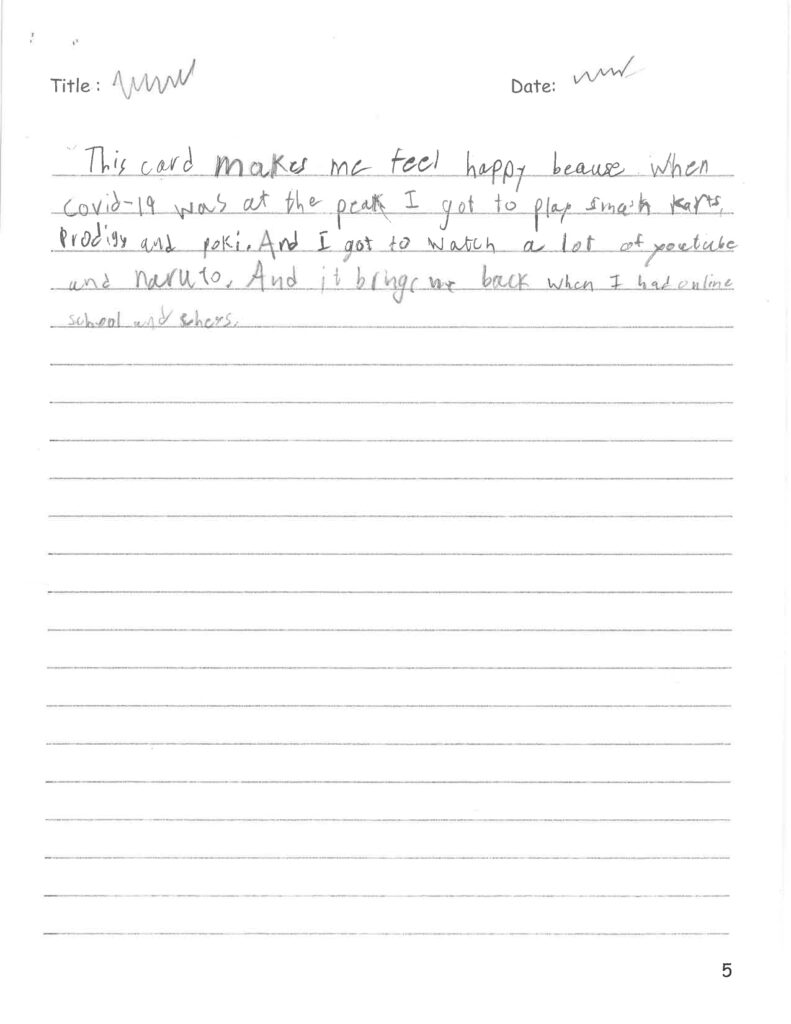 Title :
Date:
This card makes me feel happy beause when
covid-19 was at the peak I got to play smash karts,
Prodigy and poki. And I got to watch a lot of youtube
and naruto. And it brings me back when I had online
school and
5